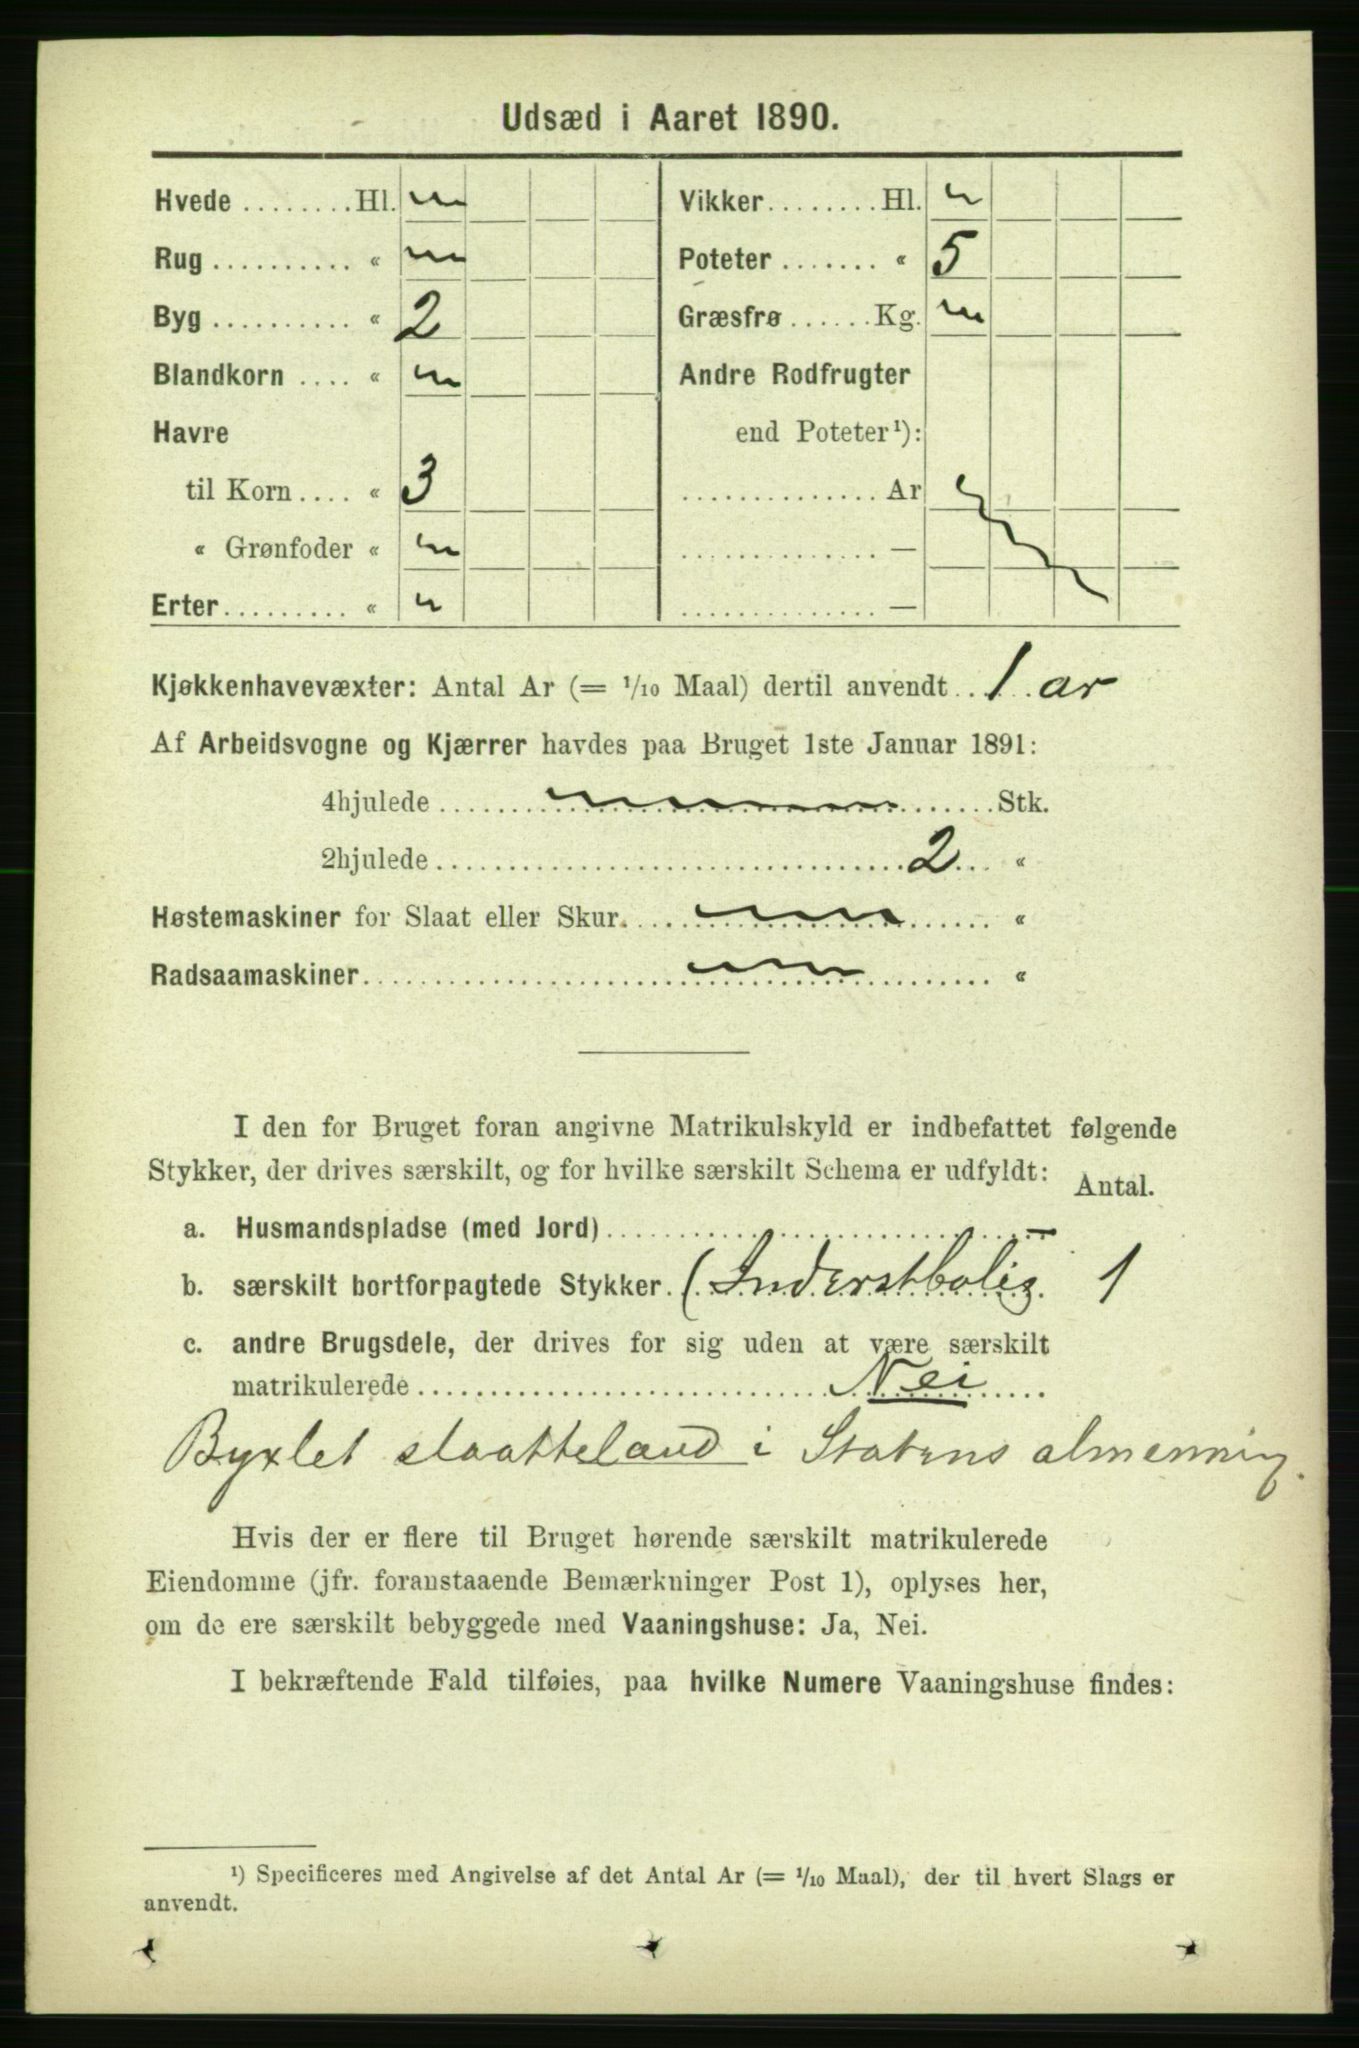 Udsæd i Aaret 1890.
Hvede ........ Hl.
Rug .......... «
Byg .......... « 2
Blandkorn .... «
Havre
til Korn .... « 3
« Grønfoder «
Erter ......... «
Vikker ........ Hl.
Poteter ....... « 5
Græsfrø ...... Kg.
Andre Rodfrugter
end Poteter¹):
.............. Ar
.............. —
.............. —
Kjøkkenhavevæxter: Antal Ar (= 1/10 Maal) dertil anvendt .. 1 ar
Af Arbeidsvogne og Kjærrer havdes paa Bruget 1ste Januar 1891:
4hjulede ........ Stk.
2hjulede ........ 2 ... «
Høstemaskiner for Slaat eller Skur. ........ «
Radsaamaskiner ........ «
I den for Bruget foran angivne Matrikulskyld er indbefattet følgende
Stykker, der drives særskilt, og for hvilke særskilt Schema er udfyldt: Antal.
a. Husmandspladse (med Jord) ........ —
b. særskilt bortforpagtede Stykker. (Inderstbolig. 1
c. andre Brugsdele, der drives for sig uden at være særskilt
matrikulerede ........ Nei ....
Byxlet slaatteland i Statens almenning.
Hvis der er flere til Bruget hørende særskilt matrikulerede
Eiendomme (jfr. foranstaaende Bemærkninger Post 1), oplyses her,
om de ere særskilt bebyggede med Vaaningshuse: Ja, Nei.
I bekræftende Fald tilføies, paa hvilke Numere Vaaningshuse findes:
¹) Specificeres med Angivelse af det Antal Ar (= 1/10 Maal), der til hvert Slags er
anvendt.